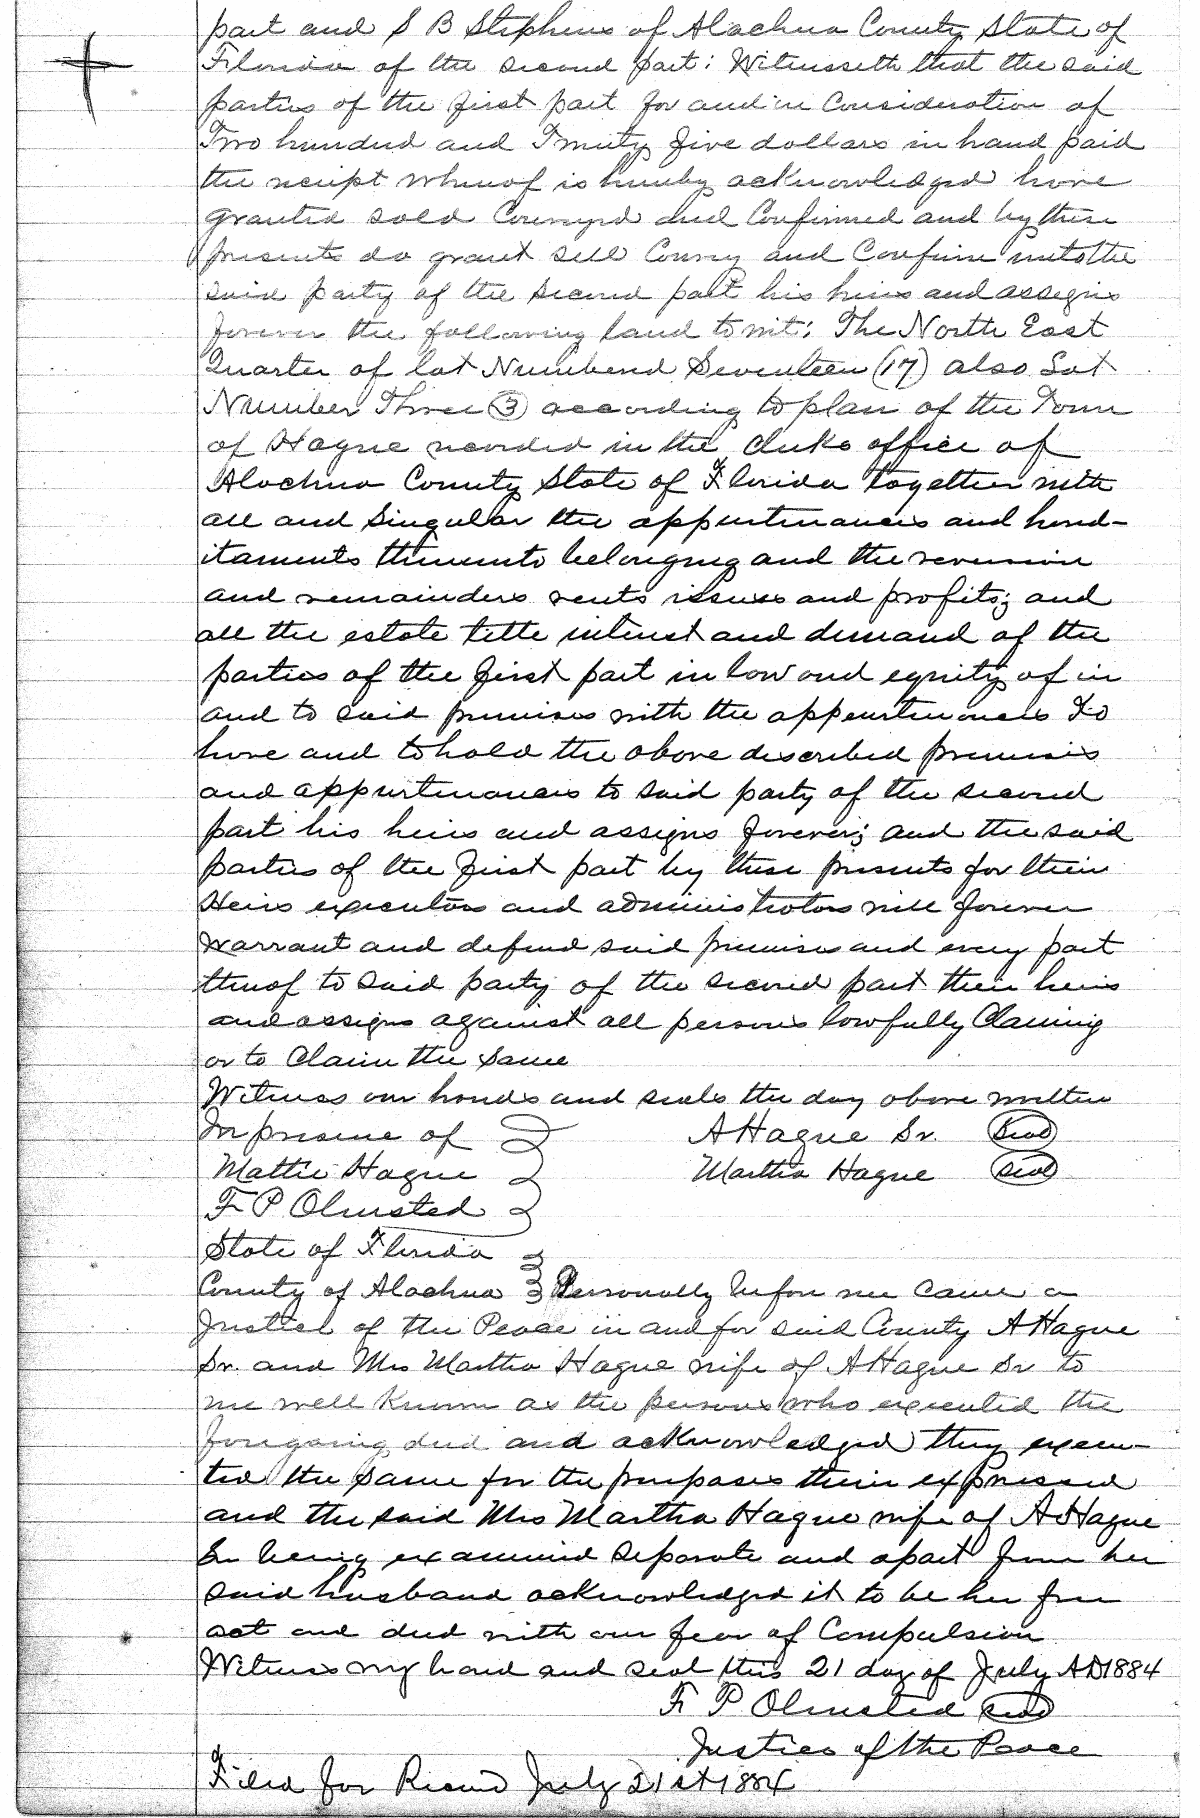 part and S B Stephens of Alachua County State of
Florida of the second part: Witnesseth that the said
parties of the first part for and in Consideration of
Two hundred and Twenty five dollars in hand paid
the receipt whereof is hereby acknowledged have
granted sold Conveyed and Confirmed and by these
presents do grant sell Convey and Confirm unto the
said party of the second part his heirs and assigns
forever the following land to wit: The North East
Quarter of lot Numbered Seventeen (17) also Lot
Number Three (3) according to plan of the Town
of Hague recorded in the clerks office of
Alachua County State of Florida together with
all and Singular the appurtenances and hered-
itaments thereunto belonging and the reversion
and remainders rents issues and profits; and
all the estate title interest and demand of the
parties of the first part in law and equity of in
and to said premises with the appurtenances To
have and to hold the above described premises
and appurtenances to said party of the second
part his heirs and assigns forever; and the said
parties of the first part by these presents for their
Heirs executors and administrators will forever
warrant and defend said premises and every part
thereof to said party of the second part their heirs
and assigns against all persons lawfully Claiming
or to Claim the same
Witness our hands and seals the day above written
In presence of A Hague Sr. Seal
Mattie Hague Martha Hague Seal
F P Olmsted
State of Florida
County of Alachua Personally before me came a
Justice of the Peace in and for said County A Hague
Sr. and Mrs Martha Hague wife of A Hague Sr to
me well known as the persons who executed the
foregoing deed and acknowledged they execu-
ted the same for the purposes their expressed
and the said Mrs Martha Hague wife of A Hague
Sr being examined separate and apart from her
said husband acknowledged it to be her free
act and deed with out fear of Compulsion
Witness my hand and seal this 21 day of July AD 1884
F P Olmsted Seal
Justice of the Peace
Filed for Record July 21st 1884